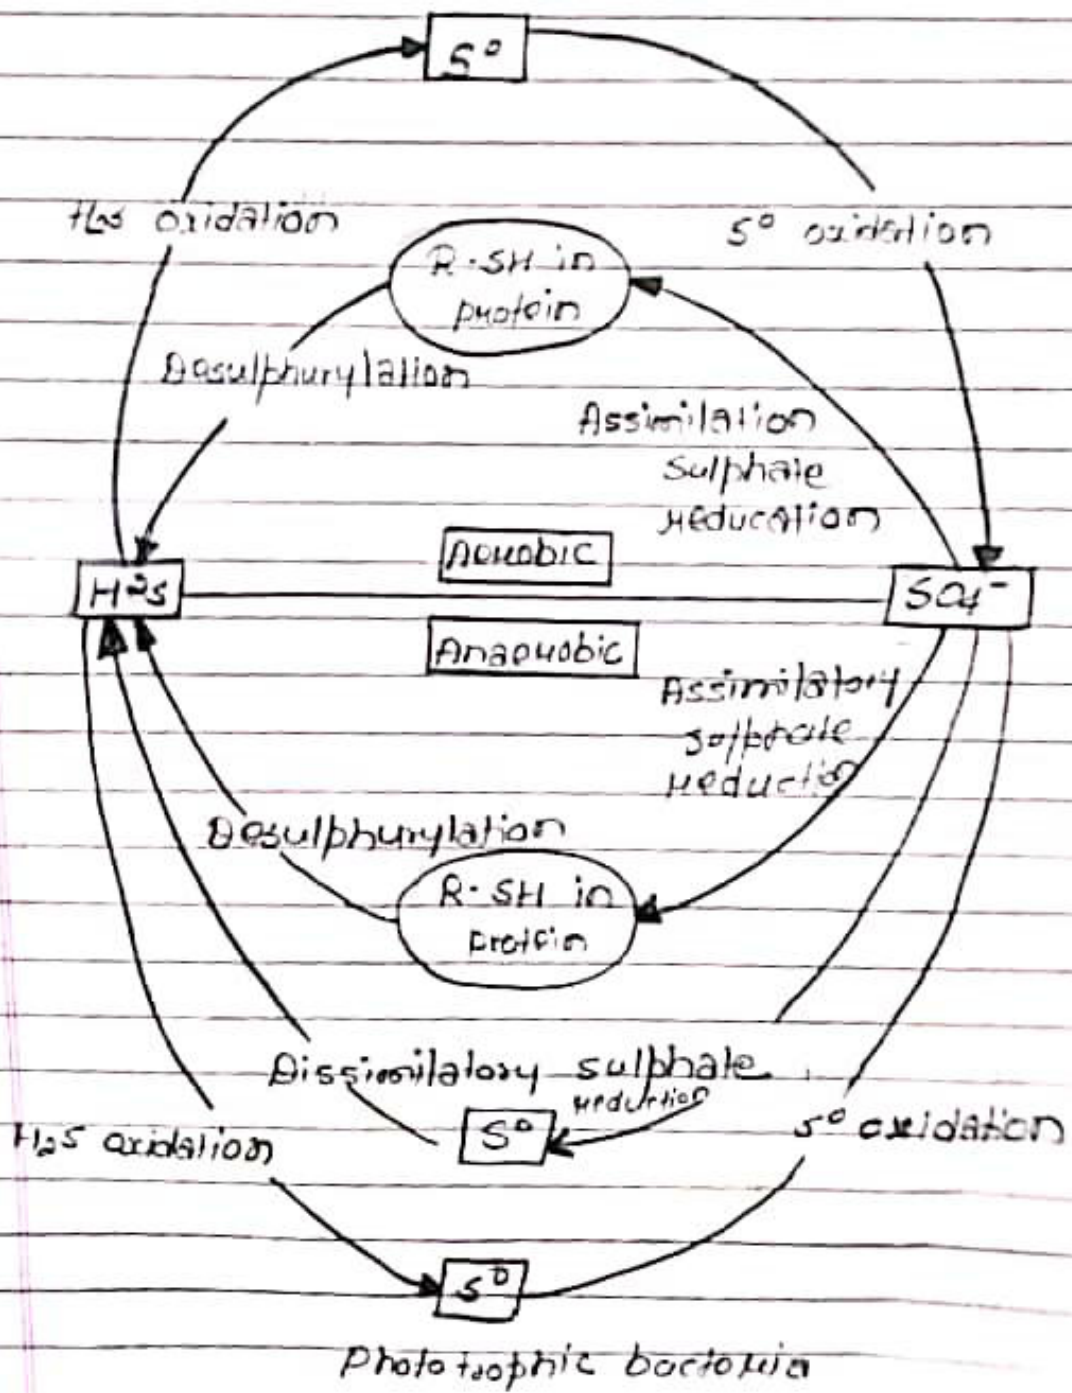 S⁰
H₂s oxidation
S⁰ oxidation
R-SH in
protein
Desulphurylation
Assimilation
Sulphate
reducation
Aerobic
H²s
SO₄⁻
Anaerobic
Assimilatory
sulphate
reduction
Desulphurylation
R-SH in
protein
Dissimilatory sulphate
reduction
S⁰
H₂S oxidation
S⁰ oxidation
S⁰
Phototrophic bacteria